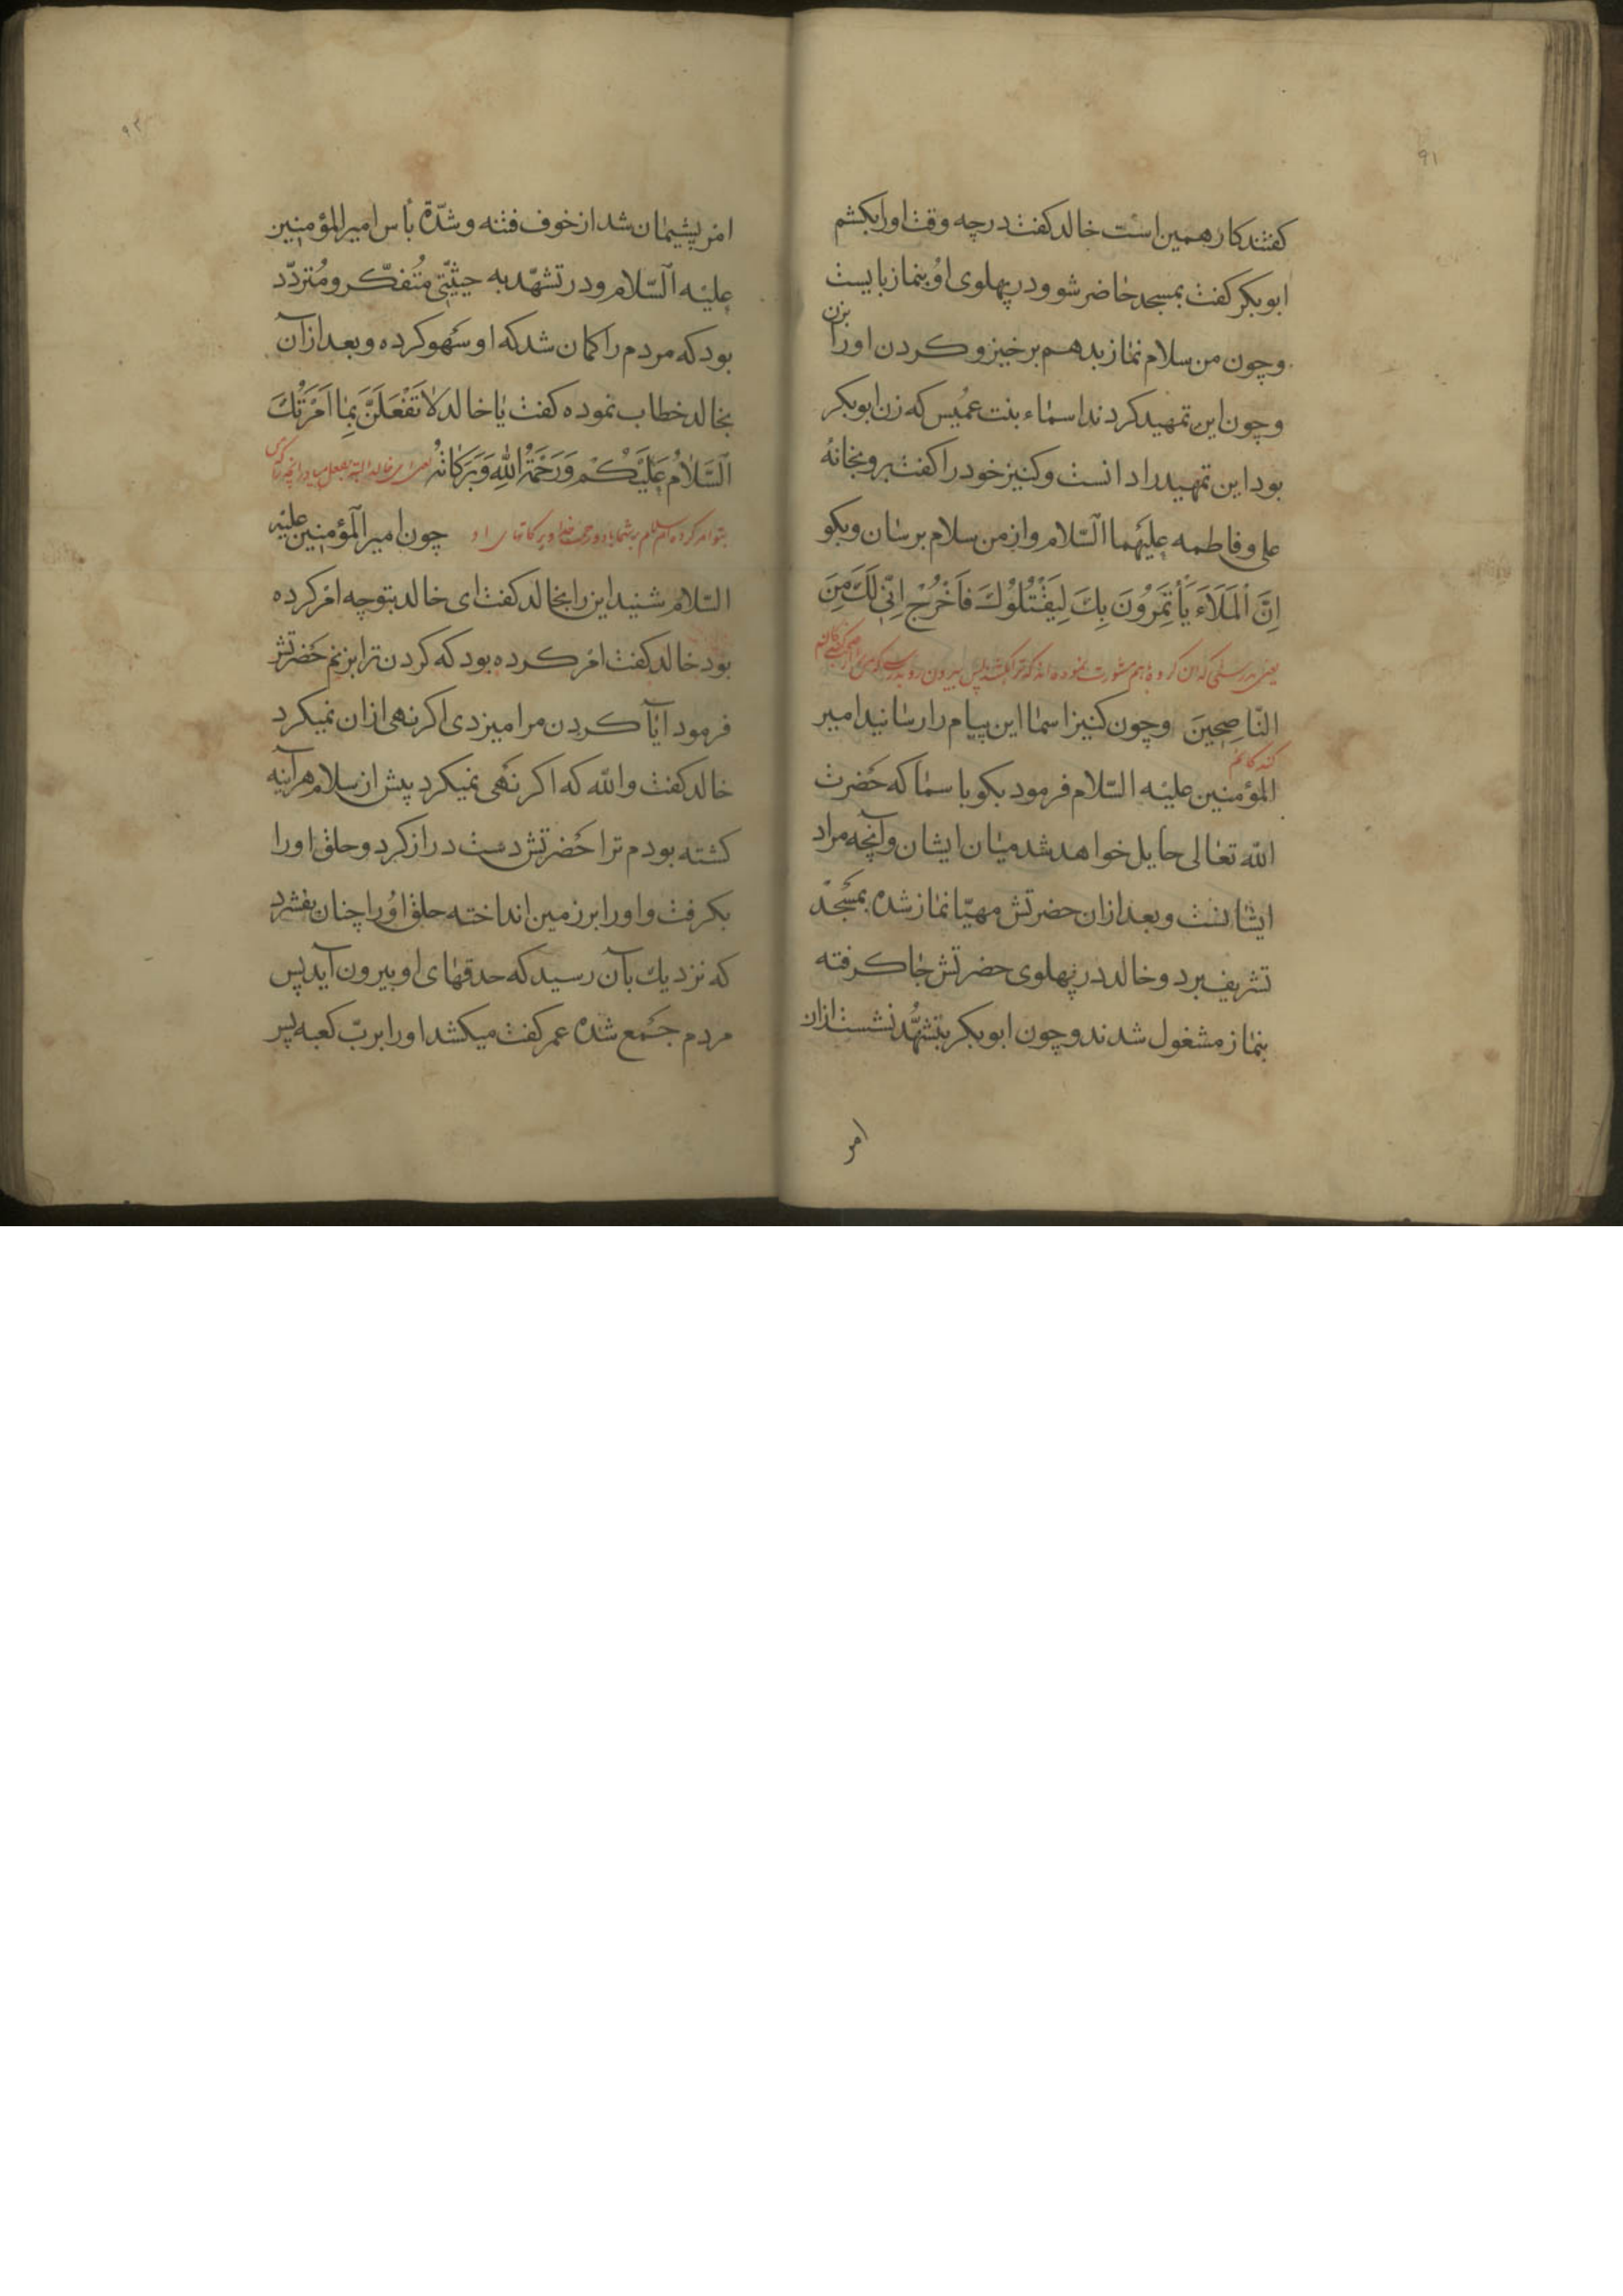 ۹۱
کفتند کار همین است خالد کفت در چه وقت او را بکشم
ابو بکر کفت بمسجد حاضر شو و در پهلوی او بنماز بایست
و چون من سلام نماز بدهم برخیز و کردن او را بزن
و چون این تمهید کردند اسماء بنت عمیس که زن ابو بکر
بود این تمهید را دانست و کنیز خود را کفت برو بخانهٔ
علی و فاطمه علیهما السّلام و از من سلام برسان و بکو
اِنَّ الْمَلَاَءَ یَأْتَمِرُونَ بِكَ لِیَقْتُلُوْكَ فَاَخْرُجْ اِنّی لَكَ مِنَ
یعنی بدرستی که آن کروه با هم مشورت نموده اند که ترا بکشند پس بیرون رو بدرستی که من از نصیحت
النّاصِحِینَ و چون کنیز اسما این پیام را رسانید امیر
کنندکانم
المؤمنین علیه السّلام فرمود بکو با سما که حَضرت
اللّه تعالی حایل خواهد شد میان ایشان و آنچه مراد
ایشانست و بعد ازان حضرتش مهیّا نماز شده بمسجد
تشریف برد و خالد در پهلوی حضرتش جا کرفته
بنماز مشغول شدند و چون ابو بکر بتشهُّد نشست ازان
امر
امر پشیمان شد از خوف فتنه و شدّة بأس امیر المؤمنین
علیه السّلام و در تشهّد به حیثیّتی مُتفکّر و مُتردّد
بود که مردم را کمان شد که او سَهو کرده و بعد ازان
بخالد خطاب نموده کفت یا خالد لَا تَفْعَلَنَّ بِمَا اَمَرْتُكَ
اَلسَّلَامُ عَلَیْكُمْ وَرَحْمَةُ اللّٰهِ وَبَرَكَاتُهُ یعنی ای خالد البته بفعل میاور آنچه ترا
بتو امر کرده ام سلام بر شما باد و رحمت خدا و برکاتهای او چون امیر المؤمنین علیه
السّلام شنید این را بخالد کفت ای خالد بتو چه امر کرده
بود خالد کفت امر کرده بود که کردن ترا بزنم حَضرتش
فرمود آیا کردن مرا میزدی اکر نهی ازان نمیکرد
خالد کفت واللّه که اکر نَهی نمیکرد پیش از سلام هرآینه
کشته بودم ترا حَضرتش دست دراز کرد و حلق او را
بکرفت و او را بر زمین انداخته حلق او را چنان بفشرد
که نزدیك بآن رسید که حدقهای او بیرون آید پس
مردم جَمع شده عمر کفت میکشد او را بربّ کعبه پس